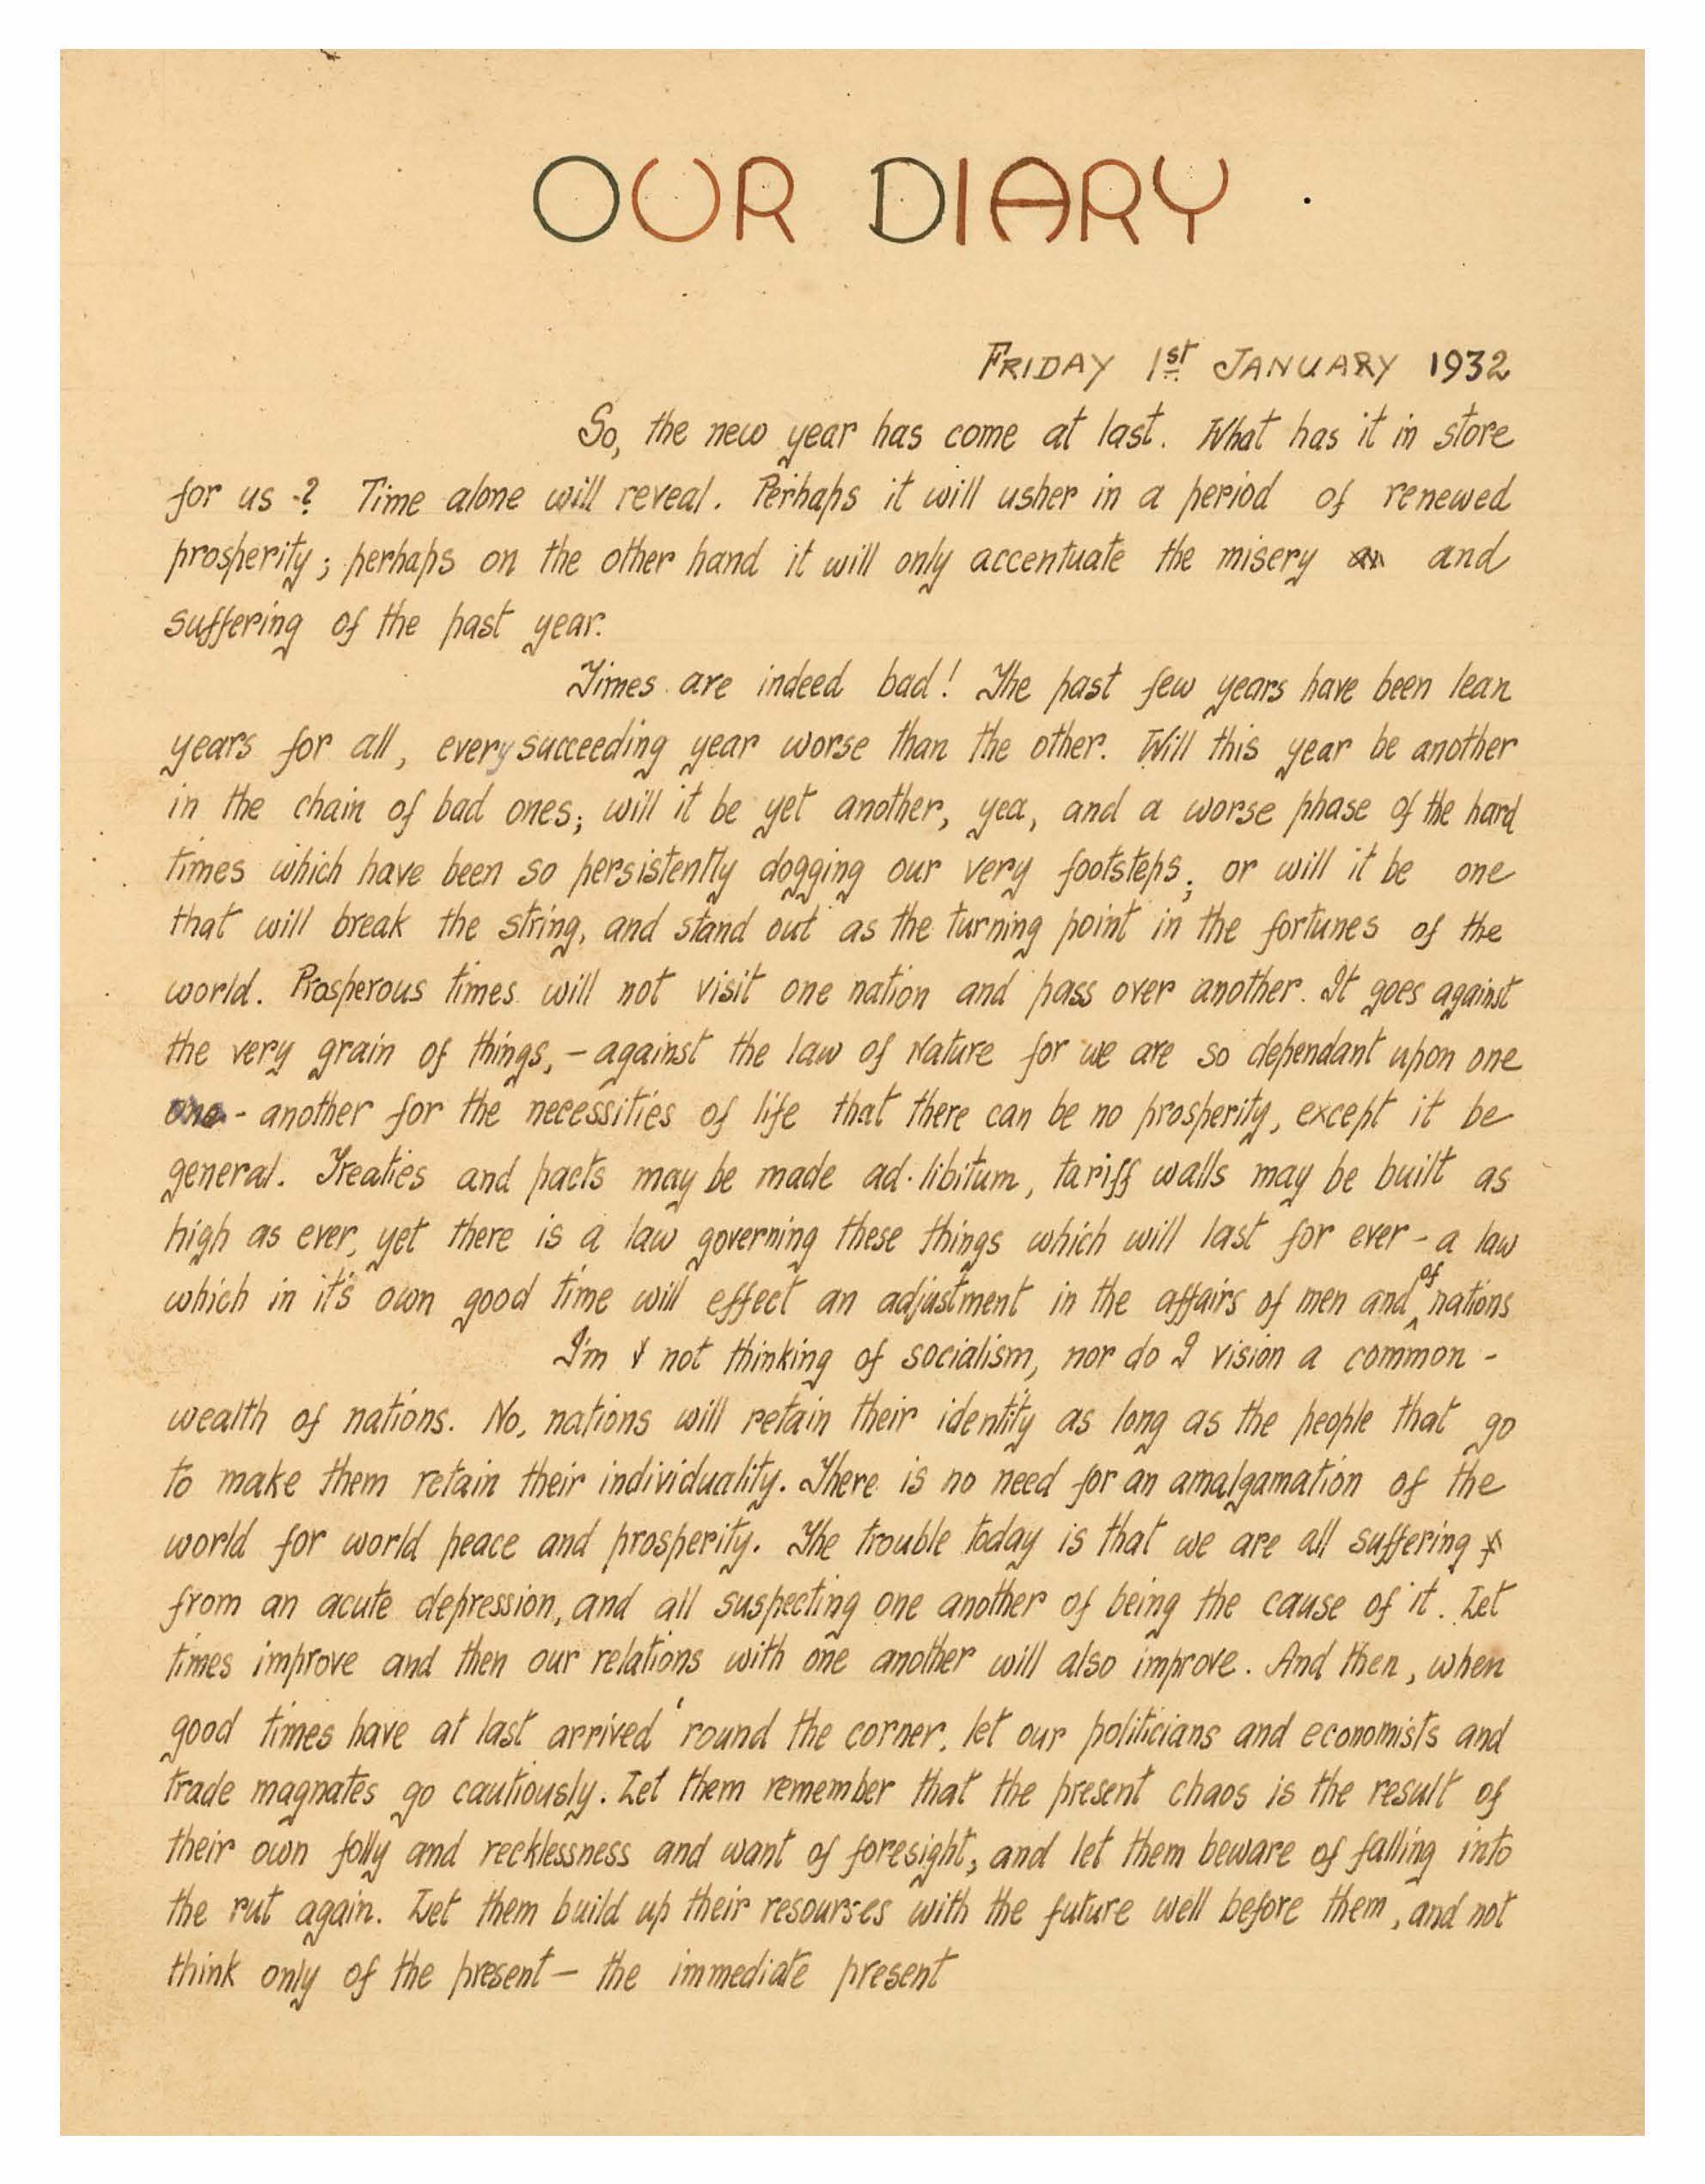 OUR DIARY.
FRIDAY 1st JANUARY 1932
So, the new year has come at last. What has it in store
for us -? Time alone will reveal. Perhaps it will usher in a period of renewed
prosperity; perhaps on the other hand it will only accentuate the misery an and
suffering of the past year.
Times are indeed bad! The past few years have been lean
years for all, every succeeding year worse than the other. Will this year be another
in the chain of bad ones; will it be yet another, yea, and a worse phase of the hard
times which have been so persistently dogging our very footsteps; or will it be one
that will break the string, and stand out as the turning point in the fortunes of the
world. Prosperous times will not visit one nation and pass over another. It goes against
the very grain of things, - against the law of Nature for we are so dependant upon one
one - another for the necessities of life that there can be no prosperity, except it be
general. Treaties and pacts may be made ad. libitum, tariff walls may be built as
high as ever, yet there is a law governing these things which will last for ever - a law
which in it's own good time will effect an adjustment in the affairs of men and of nations
I'm not thinking of socialism, nor do I vision a common -
wealth of nations. No, nations will retain their identity as long as the people that go
to make them retain their individuality. There is no need for an amalgamation of the
world for world peace and prosperity. The trouble today is that we are all suffering
from an acute depression, and all suspecting one another of being the cause of it. Let
times improve and then our relations with one another will also improve. And then, when
good times have at last arrived 'round the corner, let our politicians and economists and
trade magnates go cautiously. Let them remember that the present chaos is the result of
their own folly and recklessness and want of foresight, and let them beware of falling into
the rut again. Let them build up their resourses with the future well before them, and not
think only of the present - the immediate present